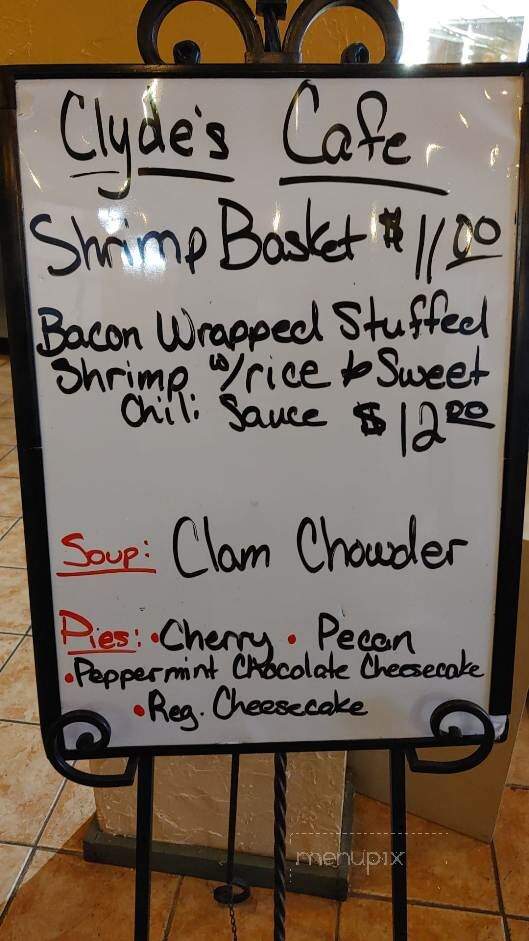 Clyde's Cafe
Shrimp Basket $11.00
Bacon Wrapped Stuffed
Shrimp w/rice & Sweet
Chili Sauce $12.00
Soup: Clam Chowder
Pies: • Cherry • Pecan
• Peppermint Chocolate Cheesecake
• Reg. Cheesecake
menupix